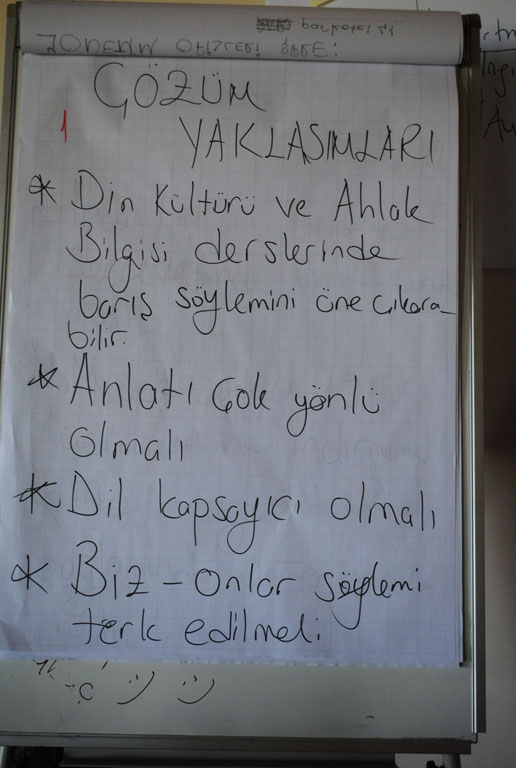 ÇÖZÜM
1
YAKLASIMLARI
* Din Kültürü ve Ahlak
Bilgisi derslerinde
barış söylemini öne çıkara-
bilir.
* Anlatı Çok yönlü
olmalı
* Dil kapsayıcı olmalı
* Biz - onlar söylemi
terk edilmeli